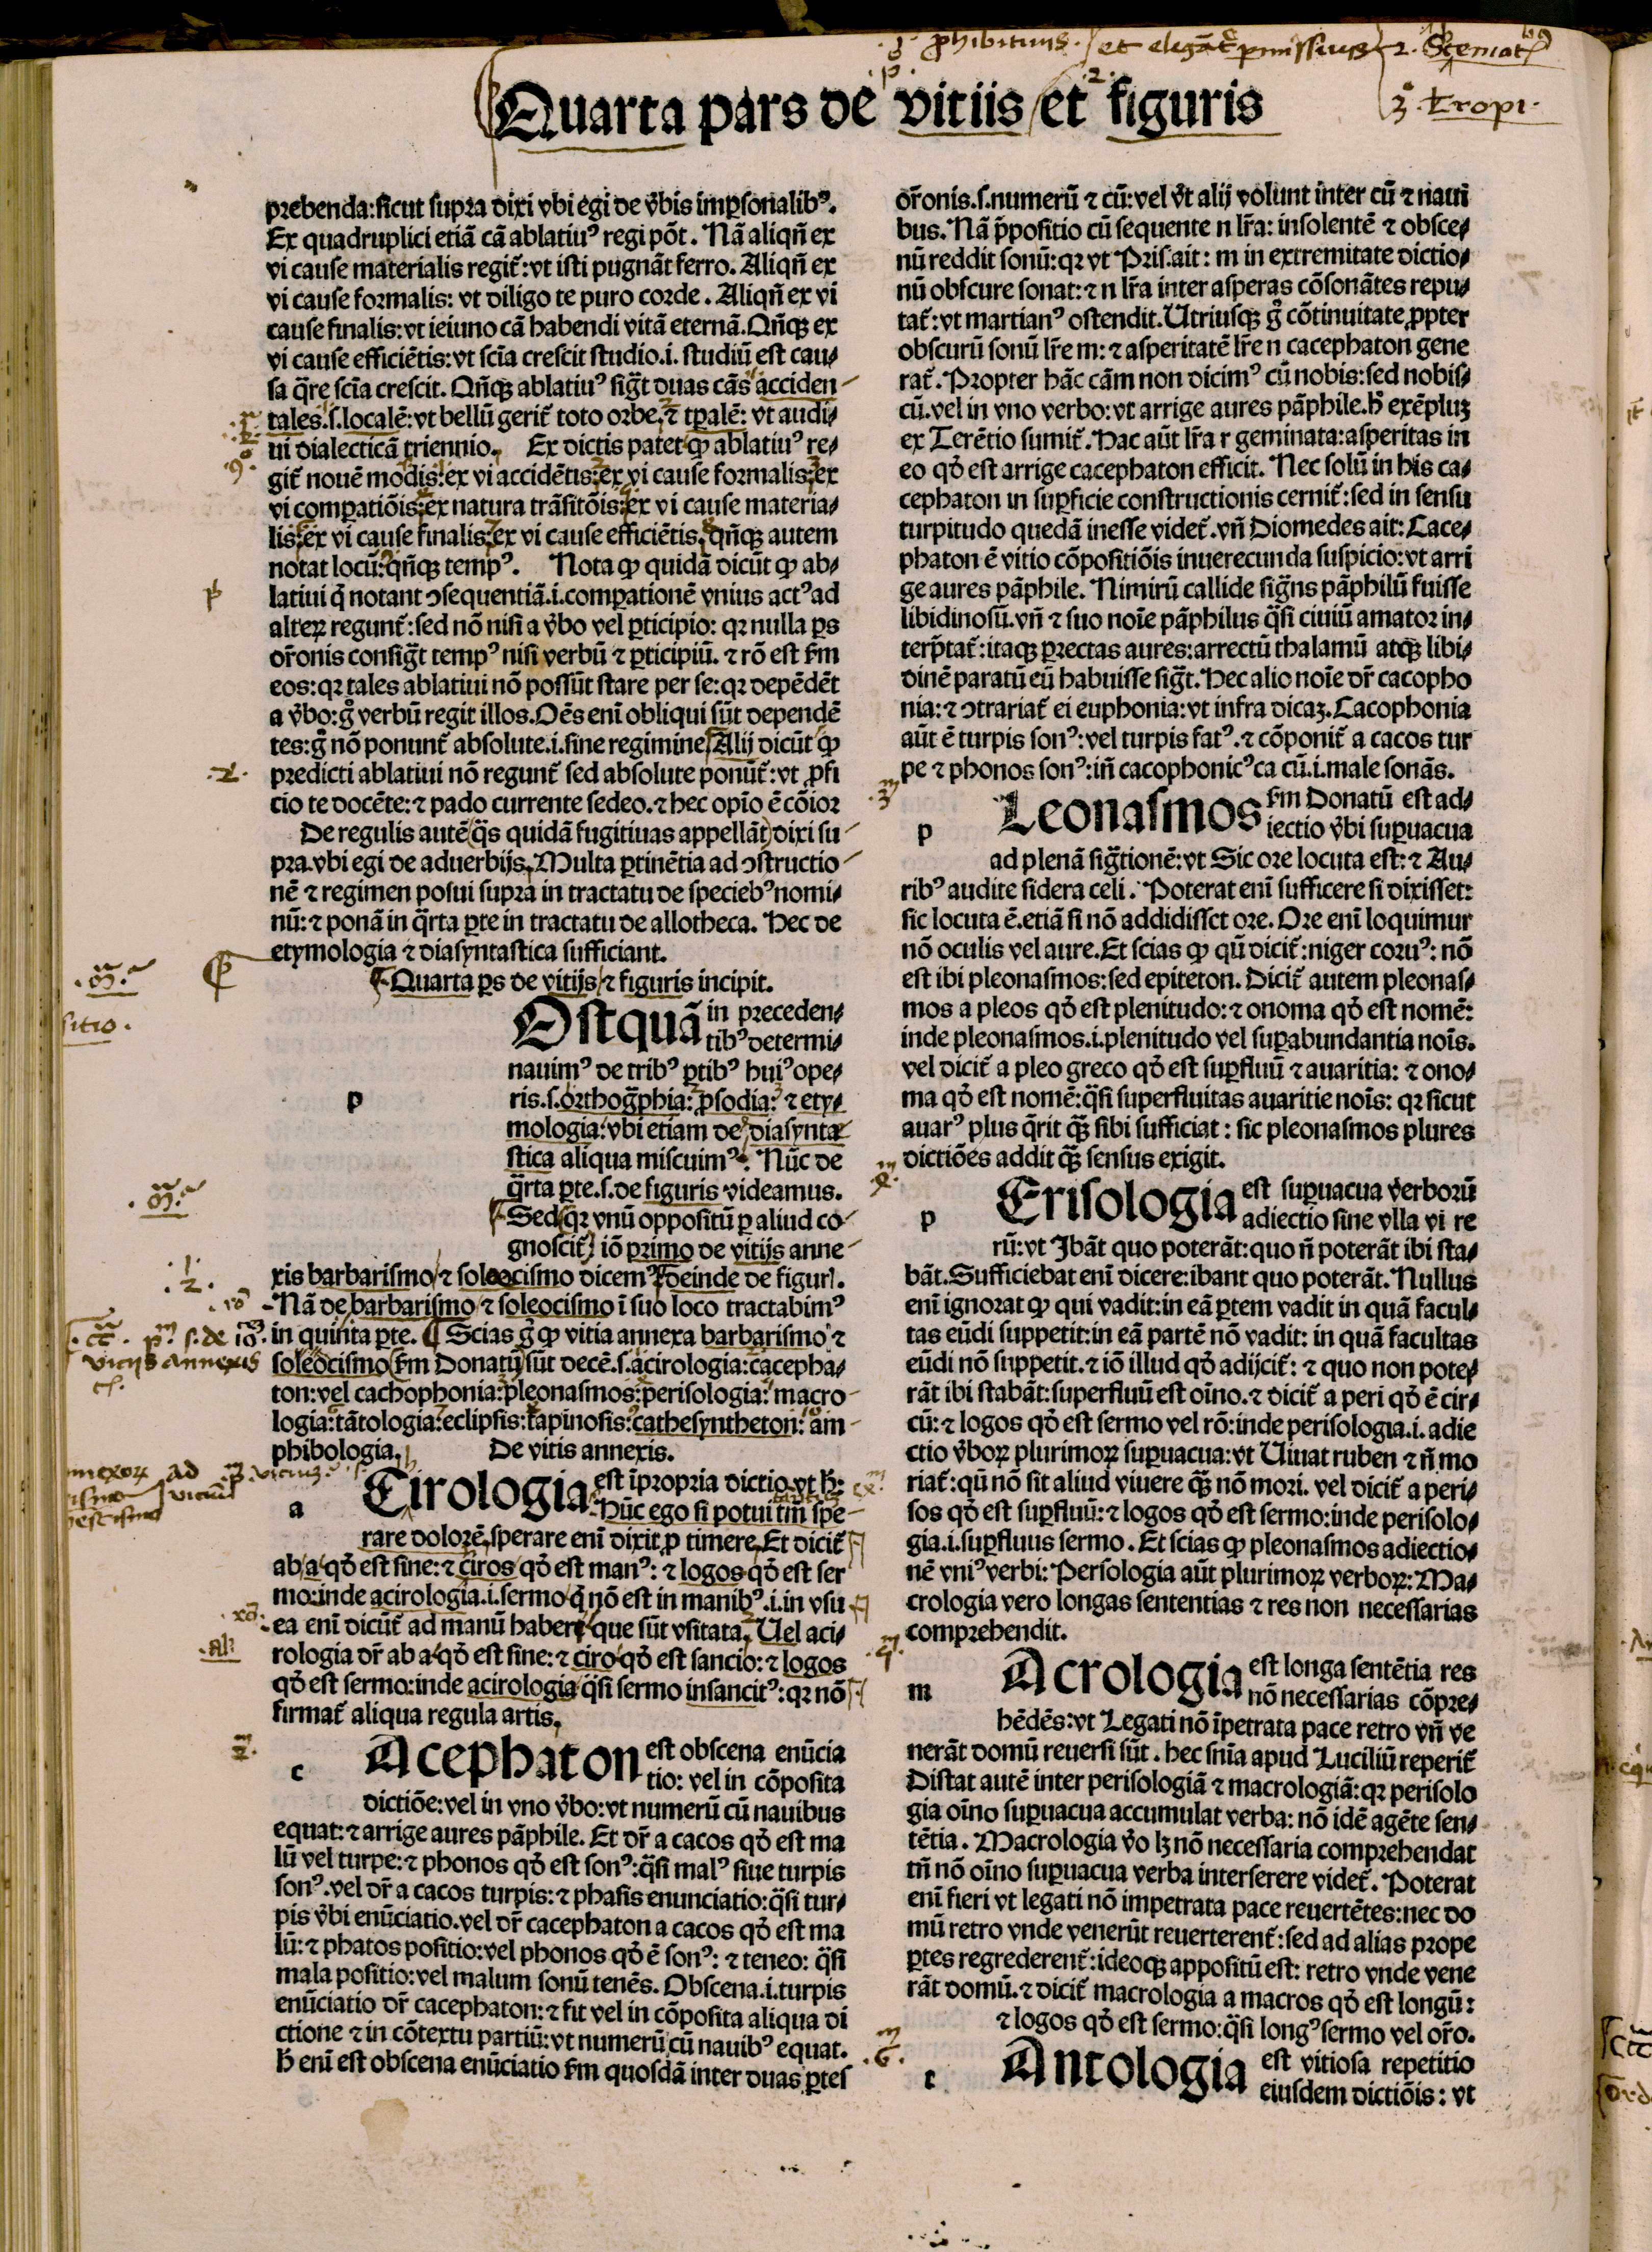 Quarta pars de vitiis et figuris
3 tropi.
prebenda:sicut supra dixi vbi egi de v̄bis imꝑsonalibꝰ.
Ex quadruplici etiā cā ablatiuꝰ regi pōt. Nā aliqn̄ ex
vi cause materialis regit᷑:vt isti pugnāt ferro. Aliqn̄ ex
vi cause formalis: vt diligo te puro corde. Aliqn̄ ex vi
cause finalis:vt ieiuno cā habendi vitā eternā. Qn̄qꝫ ex
vi cause efficiētis:vt scīa crescit studio.i. studiū est cau⸗
sa q̄re scīa crescit. Qn̄qꝫ ablatiuꝰ sig̅t duas cās acciden
tales.s.localē:vt bellū gerit᷑ toto orbe.⁊ tꝑalē: vt audi⸗
ui dialecticā triennio. Ex dictis patet ꝙ ablatiuꝰ re⸗
git᷑ nouē modis:ex vi accidētis:ex vi cause formalis:ex
vi comꝑatiōis:ex natura trāsitōis:ex vi cause materia⸗
lis:ex vi cause finalis:ex vi cause efficiētis.qn̄qꝫ autem
notat locū:qn̄qꝫ tempꝰ. Nota ꝙ quidā dicūt ꝙ ab⸗
latiui q̄ notant ↄsequentiā.i.comꝑationē vnius actꝰ ad
alteꝝ regunt᷑:sed nō nisi a v̄bo vel ꝑticipio: qꝛ nulla ꝑs
or̄onis consig̅t tempꝰ nisi verbū ⁊ ꝑticipiū. ⁊ rō est ẜm
eos:qꝛ tales ablatiui nō possūt stare per se:qꝛ depēdēt
a v̄bo:gͦ verbū regit illos.Oēs eni̅ obliqui sūt dependē
tes:gͦ nō ponunt᷑ absolute.i.sine regimine. Alij dicūt ꝙ
predicti ablatiui nō regunt᷑ sed absolute ponūt᷑:vt ꝓfi
cio te docēte:⁊ pado currente sedeo.⁊ hec opīo ē cōior
De regulis autē q̄s quidā fugitiuas appellāt dixi su
pra.vbi egi de aduerbijs. Multa ꝑtinētia ad ↄstructio
nē ⁊ regimen posui supra in tractatu de speciebꝰ nomi⸗
nū:⁊ ponā in q̄rta ꝑte in tractatu de allotheca. Hec de
etymologia ⁊ diasyntastica sufficiant.
¶ Quarta ꝑs de vitijs ⁊ figuris incipit.
p Ostquā in preceden⸗
tibꝰ determi⸗
nauimꝰ de tribꝰ ꝑtibꝰ huiꝰ ope⸗
ris.s.orthog̅phia: ꝓsodia: ⁊ ety⸗
mologia:vbi etiam de diasynta
stica aliqua miscuimꝰ. Nūc de
q̄rta ꝑte.s.de figuris videamus.
¶ Sed qꝛ vnū oppositū ꝑ aliud co
gnoscit᷑ iō primo de vitijs anne
xis barbarismo ⁊ soleocismo dicemꝰ deinde de figuris.
Nā de barbarismo ⁊ soleocismo ī suo loco tractabimꝰ
in quinta ꝑte. ¶ Scias gͦ ꝙ vitia annexa barbarismo ⁊
soleocismo ẜm Donatū sūt decē.s.acirologia:cacepha⸗
ton:vel cachophonia:pleonasmos:perisologia: macro
logia:tātologia:eclipsis:tapinosis:cathesyntheton: am
phibologia. De vitis annexis.
a Cirologia est īpropria dictio.vt h̄:
Hūc ego si potui tm̄ spe
rare dolorē.sperare eni̅ dixit ꝓ timere. Et dicit᷑
ab a qd̄ est sine:⁊ ciros qd̄ est manꝰ: ⁊ logos qd̄ est ser
mo:inde acirologia.i.sermo q̄ nō est in manibꝰ.i.in vsu
ea eni̅ dicūt᷑ ad manū habere que sūt vsitata. Uel aci⸗
rologia dr̄ ab a qd̄ est sine:⁊ ciro qd̄ est sancio:⁊ logos
qd̄ est sermo:inde acirologia q̄si sermo insancitꝰ:qꝛ nō
firmat᷑ aliqua regula artis.
c Acephaton est obscena enūcia
tio: vel in cōposita
dictiōe:vel in vno v̄bo:vt numerū cū nauibus
equat:⁊ arrige aures pāphile. Et dr̄ a cacos qd̄ est ma
lū vel turpe:⁊ phonos qd̄ est sonꝰ:q̄si malꝰ siue turpis
sonꝰ.vel dr̄ a cacos turpis:⁊ phasis enunciatio:q̄si tur⸗
pis v̄bi enūciatio.vel dr̄ cacephaton a cacos qd̄ est ma
lū:⁊ phatos positio:vel phonos qd̄ ē sonꝰ: ⁊ teneo: q̄si
mala positio:vel malum sonū tenēs. Obscena.i.turpis
enūciatio dr̄ cacephaton:⁊ fit vel in cōposita aliqua di
ctione ⁊ in cōtextu partiū:vt numerū cū nauibꝰ equat.
h̄ eni̅ est obscena enūciatio ẜm quosdā inter duas ꝑtes
or̄onis.s.numerū ⁊ cū:vel v̄t alij volunt inter cū ⁊ naui
bus. Nā p̄positio cū sequente n lr̄a: insolentē ⁊ obsce⸗
nū reddit sonū:qꝛ vt Pris.ait: m in extremitate dictio⸗
nū obscure sonat:⁊ n lr̄a inter asperas cōsonātes repu⸗
tat᷑:vt martianꝰ ostendit. Utriusqꝫ gͦ cōtinuitate ꝓpter
obscurū sonū lr̄e m: ⁊ asperitatē lr̄e n cacephaton gene
rat᷑. Propter hāc cām non dicimꝰ cū nobis:sed nobis⸗
cū.vel in vno verbo:vt arrige aures pāphile.h̄ exēpluꝫ
ex Terētio sumit᷑. Hac aūt lr̄a r geminata:asperitas in
eo qd̄ est arrige cacephaton efficit. Nec solū in his ca⸗
cephaton in suꝑficie constructionis cernit᷑:sed in sensu
turpitudo quedā inesse videt᷑.vn̄ Diomedes ait: Cace⸗
phaton ē vitio cōpositiōis inuerecunda suspicio:vt arri
ge aures pāphile. Nimirū callide sig̅ns pāphilū fuisse
libidinosū.vn̄ ⁊ suo noīe pāphilus q̄si ciuiū amator in⸗
terp̄tat᷑:itaqꝫ ꝑrectas aures:arrectū thalamū atqꝫ libi⸗
dinē paratū eū habuisse sig̅t. Hec alio noīe dr̄ cacopho
nia:⁊ ↄtrariat᷑ ei euphonia:vt infra dicaꝫ. Cacophonia
aūt ē turpis sonꝰ:vel turpis fatꝰ.⁊ cōponit᷑ a cacos tur
pe ⁊ phonos sonꝰ:in̄ cacophonicꝰ ca cū.i.male sonās.
p Leonasmos ẜm Donatū est ad⸗
iectio v̄bi suꝑuacua
ad plenā sig̅tionē:vt Sic ore locuta est:⁊ Au⸗
ribꝰ audite sidera celi. Poterat eni̅ sufficere si dixisset:
sic locuta ē.etiā si nō addidisset ore. Ore eni̅ loquimur
nō oculis vel aure. Et scias ꝙ qū dicit᷑:niger coruꝰ: nō
est ibi pleonasmos:sed epiteton. Dicit᷑ autem pleonas⸗
mos a pleos qd̄ est plenitudo:⁊ onoma qd̄ est nomē:
inde pleonasmos.i.plenitudo vel suꝑabundantia noīs.
vel dicit᷑ a pleo greco qd̄ est suꝑfluū ⁊ auaritia: ⁊ ono⸗
ma qd̄ est nomē:q̄si superfluitas auaritie noīs: qꝛ sicut
auarꝰ plus q̄rit qꝫ̄ sibi sufficiat: sic pleonasmos plures
dictiōes addit qꝫ̄ sensus exigit.
p Erisologia est suꝑuacua v̄erborū
adiectio sine vlla vi re
rū:vt Ibāt quo poterāt:quo n̄ poterāt ibi sta⸗
bāt. Sufficiebat eni̅ dicere:ibant quo poterāt. Nullus
eni̅ ignorat ꝙ qui vadit:in eā ꝑtem vadit in quā facul⸗
tas eūdi suppetit:in eā partē nō vadit: in quā facultas
eūdi nō suppetit.⁊ iō illud qd̄ adijcit᷑: ⁊ quo non pote⸗
rāt ibi stabāt:superfluū est oīno.⁊ dicit᷑ a peri qd̄ ē cir⸗
cū:⁊ logos qd̄ est sermo vel rō:inde perisologia.i. adie
ctio v̄boꝝ plurimoꝝ suꝑuacua:vt Uiuat ruben ⁊ n̄ mo
riat᷑:qū nō sit aliud viuere qꝫ̄ nō mori. vel dicit᷑ a peri⸗
sos qd̄ est suꝑfluū:⁊ logos qd̄ est sermo:inde perisolo⸗
gia.i.suꝑfluus sermo. Et scias ꝙ pleonasmos adiectio⸗
nē vniꝰ verbi: Persologia aūt plurimoꝝ verboꝝ: Ma⸗
crologia vero longas sententias ⁊ res non necessarias
comprehendit.
m Acrologia est longa sentētia res
nō necessarias cōpre⸗
hēdēs:vt Legati nō īpetrata pace retro vn̄ ve
nerāt domū reuersi sūt. hec sn̄ia apud Luciliū reperit᷑
Distat autē inter perisologiā ⁊ macrologiā:qꝛ perisolo
gia oīno suꝑuacua accumulat verba: nō idē agēte sen⸗
tētia. Macrologia v̄o lꝫ nō necessaria comprehendat
tn̄ nō oīno suꝑuacua verba interserere videt᷑. Poterat
eni̅ fieri vt legati nō impetrata pace reuertētes:nec do
mū retro vnde venerūt reuerterent᷑:sed ad alias prope
ꝑtes regrederent᷑:ideoqꝫ appositū est: retro vnde vene
rāt domū.⁊ dicit᷑ macrologia a macros qd̄ est longū:
⁊ logos qd̄ est sermo:q̄si longꝰ sermo vel or̄o.
t Antologia est vitiosa repetitio
eiusdem dictiōis: vt